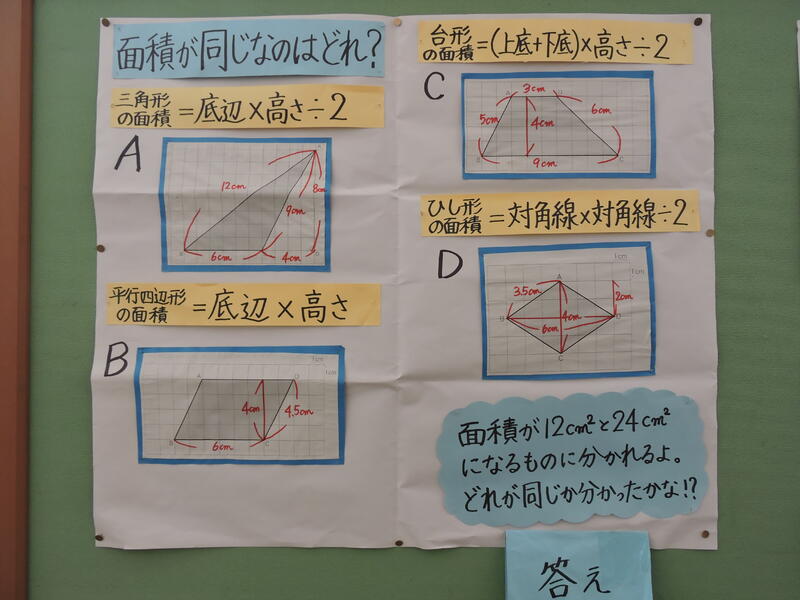 面積が同じなのはどれ?
三角形
の面積 = 底辺×高さ÷2
A
12cm
8cm
9cm
6cm
4cm
平行四辺形
の面積 = 底辺×高さ
B
1cm
1cm
A
D
4cm
4.5cm
B
6cm
C
台形
の面積 = (上底+下底)×高さ÷2
C
3cm
5cm
4cm
6cm
9cm
ひし形
の面積 = 対角線×対角線÷2
D
1cm
1cm
A
3.5cm
2cm
B
4cm
D
6cm
C
面積が12cm²と24cm²
になるものに分かれるよ。
どれが同じか分かったかな!?
答え